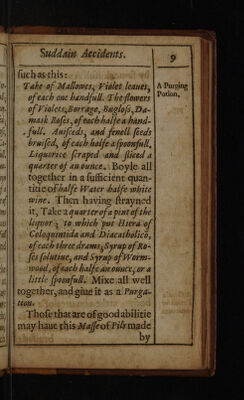 Suddain Accidents.
9
such as this:
Take of Mallowes, Violet leaues,
of each one handfull. The flowers
of Violets, Borrage, Buglosse, Da-
mask Roses, of each halfe a hand-
full. Aniseeds, and fenell seeds
bruised, of each halfe a spoonfull.
Liquorice scraped and sliced a
quarter of an ounce. Boyle all
together in a sufficient quan-
titie of halfe Water halfe white
wine. Then having strayned
it, Take a quarter of a pint of the
liquor; to which put Hiera of
Coloquintida and Diacatholicō,
of each three drams; Syrup of Ro-
ses solutiue, and Syrup of Worm-
wood, of each halfe an ounce, or a
little spoonfull. Mixe all well
together, and giue it as a Purga-
tion.
Those that are of good abilitie
may haue this Masse of Pils made
by
A Purging
Potion.